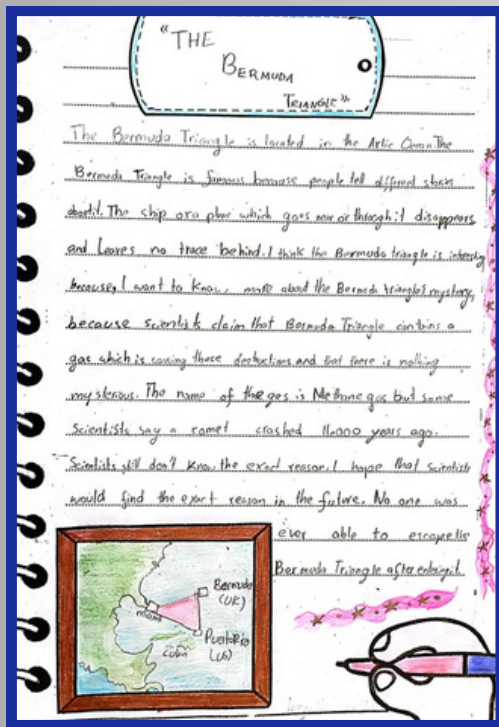 "THE
BERMUDA
TRIANGLE"
The Bermuda Triangle is located in the Artic Ocean. The
Bermuda Triangle is famous because people tell different stories
about it. The ship or a plane which goes near or through it disappears
and Leaves no trace behind. I think the Bermuda triangle is interesting
because, I want to know more about the Bermuda triangle's mystery,
because scientists claim that Bermuda Triangle contains a
gas which is causing these destructions and that there is nothing
mysterious. The name of the gas is Methane gas but some
scientists say a comet crashed 11,000 years ago.
Scientists still don't know the exact reason. I hope that scientists
would find the exact reason in the future. No one was
ever able to escape the
Bermuda Triangle after entering it.
Bermuda
(UK)
miami
Cuba
(US)